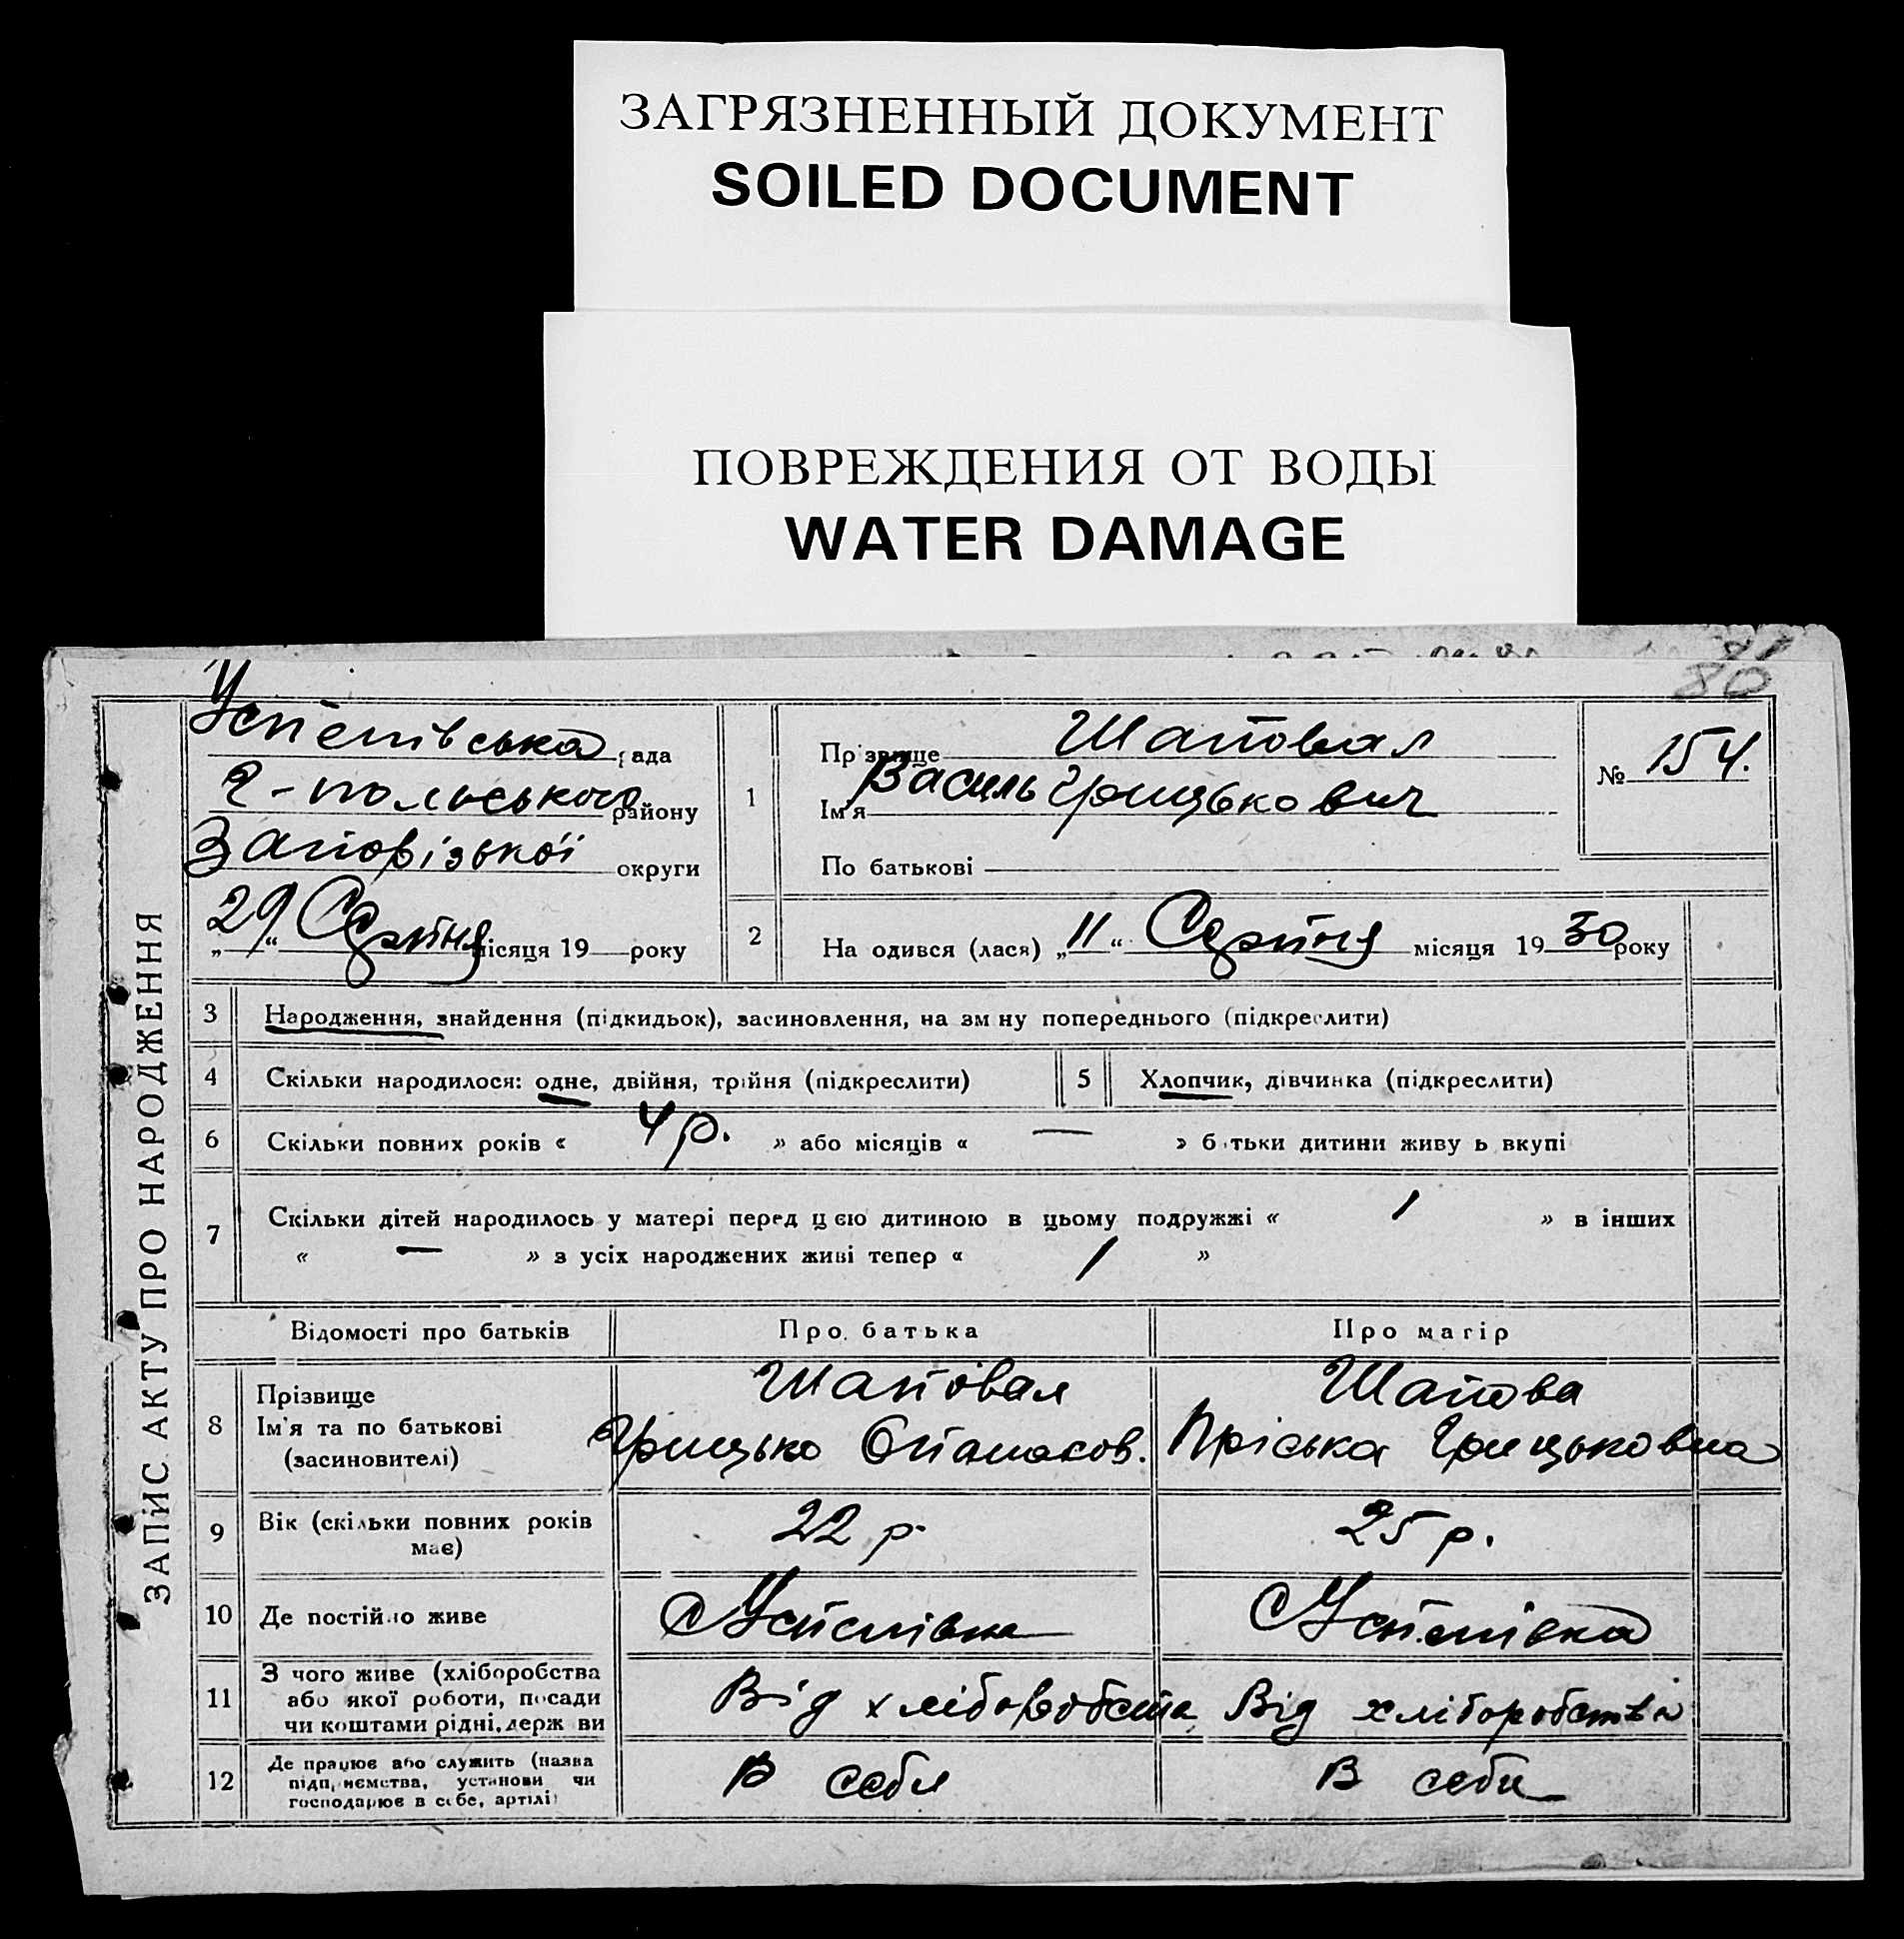 ЗАГРЯЗНЕННЫЙ ДОКУМЕНТ
SOILED DOCUMENT
ПОВРЕЖДЕНИЯ ОТ ВОДЫ
WATER DAMAGE
80
ЗАПИС АКТУ ПРО НАРОДЖЕННЯ
Успенівська рада
Г-польського району
Запорізької округи
„29“ Серпня місяця 19 року
1
Прізвище Шаповал
Ім'я Василь Грицькович
По батькові
№ 154.
2
На одився (лася) „11“ Серпня місяця 1930 року
3 Народження, знайдення (підкидьок), засиновлення, на зм ну попереднього (підкреслити)
4 Скільки народилося: одне, двійня, трійня (підкреслити) 5 Хлопчик, дівчинка (підкреслити)
6 Скільки повних років « 4 р. » або місяців « — » б тьки дитини живу ь вкупі
7 Скільки дітей народилось у матері перед цією дитиною в цьому подружжі « 1 » в інших
« — » з усіх народжених живі тепер « 1 »
Відомості про батьків Про батька Про матір
8 Прізвище
Ім'я та по батькові
(засиновителі)
Шаповал
Грицько Опанасов.
Шапова
Пріська Грицьковна
9 Вік (скільки повних років
має)
22 р.
25 р.
10 Де постійно живе
с Успенівка
с Успенівка
11 З чого живе (хліборобства
або якої роботи, посади
чи коштами рідні, держ ви
Від хліборобства
Від хліборобства
12 Де працює або служить (назва
підприємства, установи чи
господарює в себе, артілі)
В себе
В себе